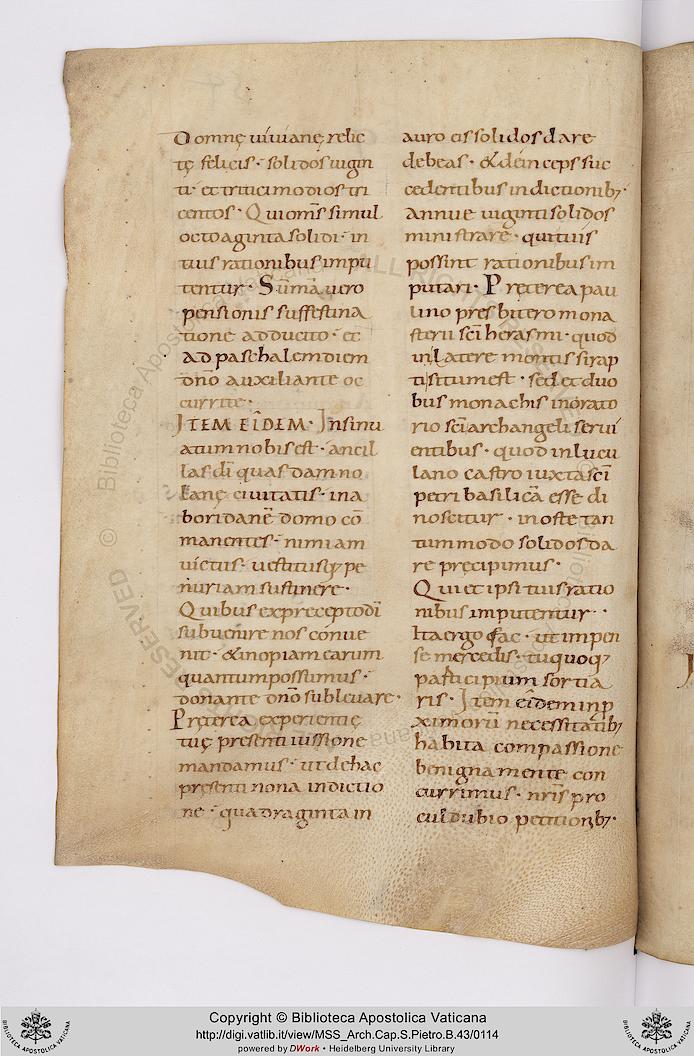 Domnę uiuianę relic
tę felicis · solidos uigin
ti · et tritici modios tri
centos · Qui om̄s simul
octoaginta solidi · in
tuis rationibus impu
tentur · Sūmā uero
pensionis suffestina
tione adducito · et
ad paschalem diem
dn̄o auxiliante oc
currite ·
ITEM EĪDEM · Insinu
atum nobis est · ancil
las dī quas damno
lanę ciuitatis · in a
boridanē domo cō
manentes · nimiam
uictus · uestitusq; pe
nuriam sustinere ·
Quibus ex precepto dī
subuenire nos conue
nit · & inopiam earum
quantum possumus ·
donante dn̄o subleuare ·
Pręterea experientię
tuę presenti iussione
mandamus · ut de hac
presenti nona indictio
ne · quadraginta in
auro eis solidos dare
debeas · & deinceps suc
cedentibus indictionib;
annue uiginti solidos
ministrare · qui tuis
possint rationibus im
putari · Pręterea pau
lino presbitero mona
sterii sc̄i herasmi · quod
in latere montis sirap
ti situm est · sed et duo
bus monachis in orato
rio sc̄i archangeli serui
entibus · quod in lucu
lano castro iuxta sc̄i
petri basilicā esse di
noscitur · in oste tan
tummodo solidos da
re pręcipimus ·
Qui et ipsi tuis ratio
nibus imputentur ·
Ita ergo fac · ut impen
se mercedis · tu quoq;
participium sortia
ris · Item eīdem in p
ximorū necessitatib;
habita compassione
benigna mente con
currimus · nr̄is pro
culdubio petitionib; ·
Copyright © Biblioteca Apostolica Vaticana
http://digi.vatlib.it/view/MSS_Arch.Cap.S.Pietro.B.43/0114
powered by DWork • Heidelberg University Library